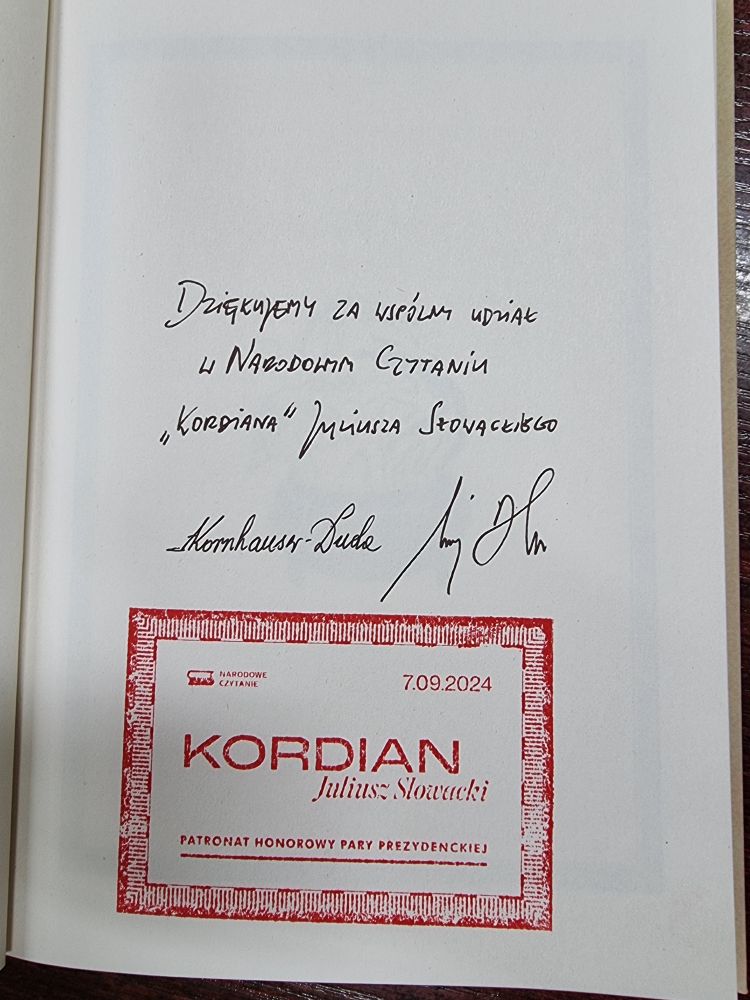 Dziękujemy za wspólny udział
w Narodowym Czytaniu
„Kordiana" Juliusza Słowackiego
AKornhauser-Duda
NARODOWE
CZYTANIE
7.09.2024
KORDIAN
Juliusz Słowacki
PATRONAT HONOROWY PARY PREZYDENCKIEJ